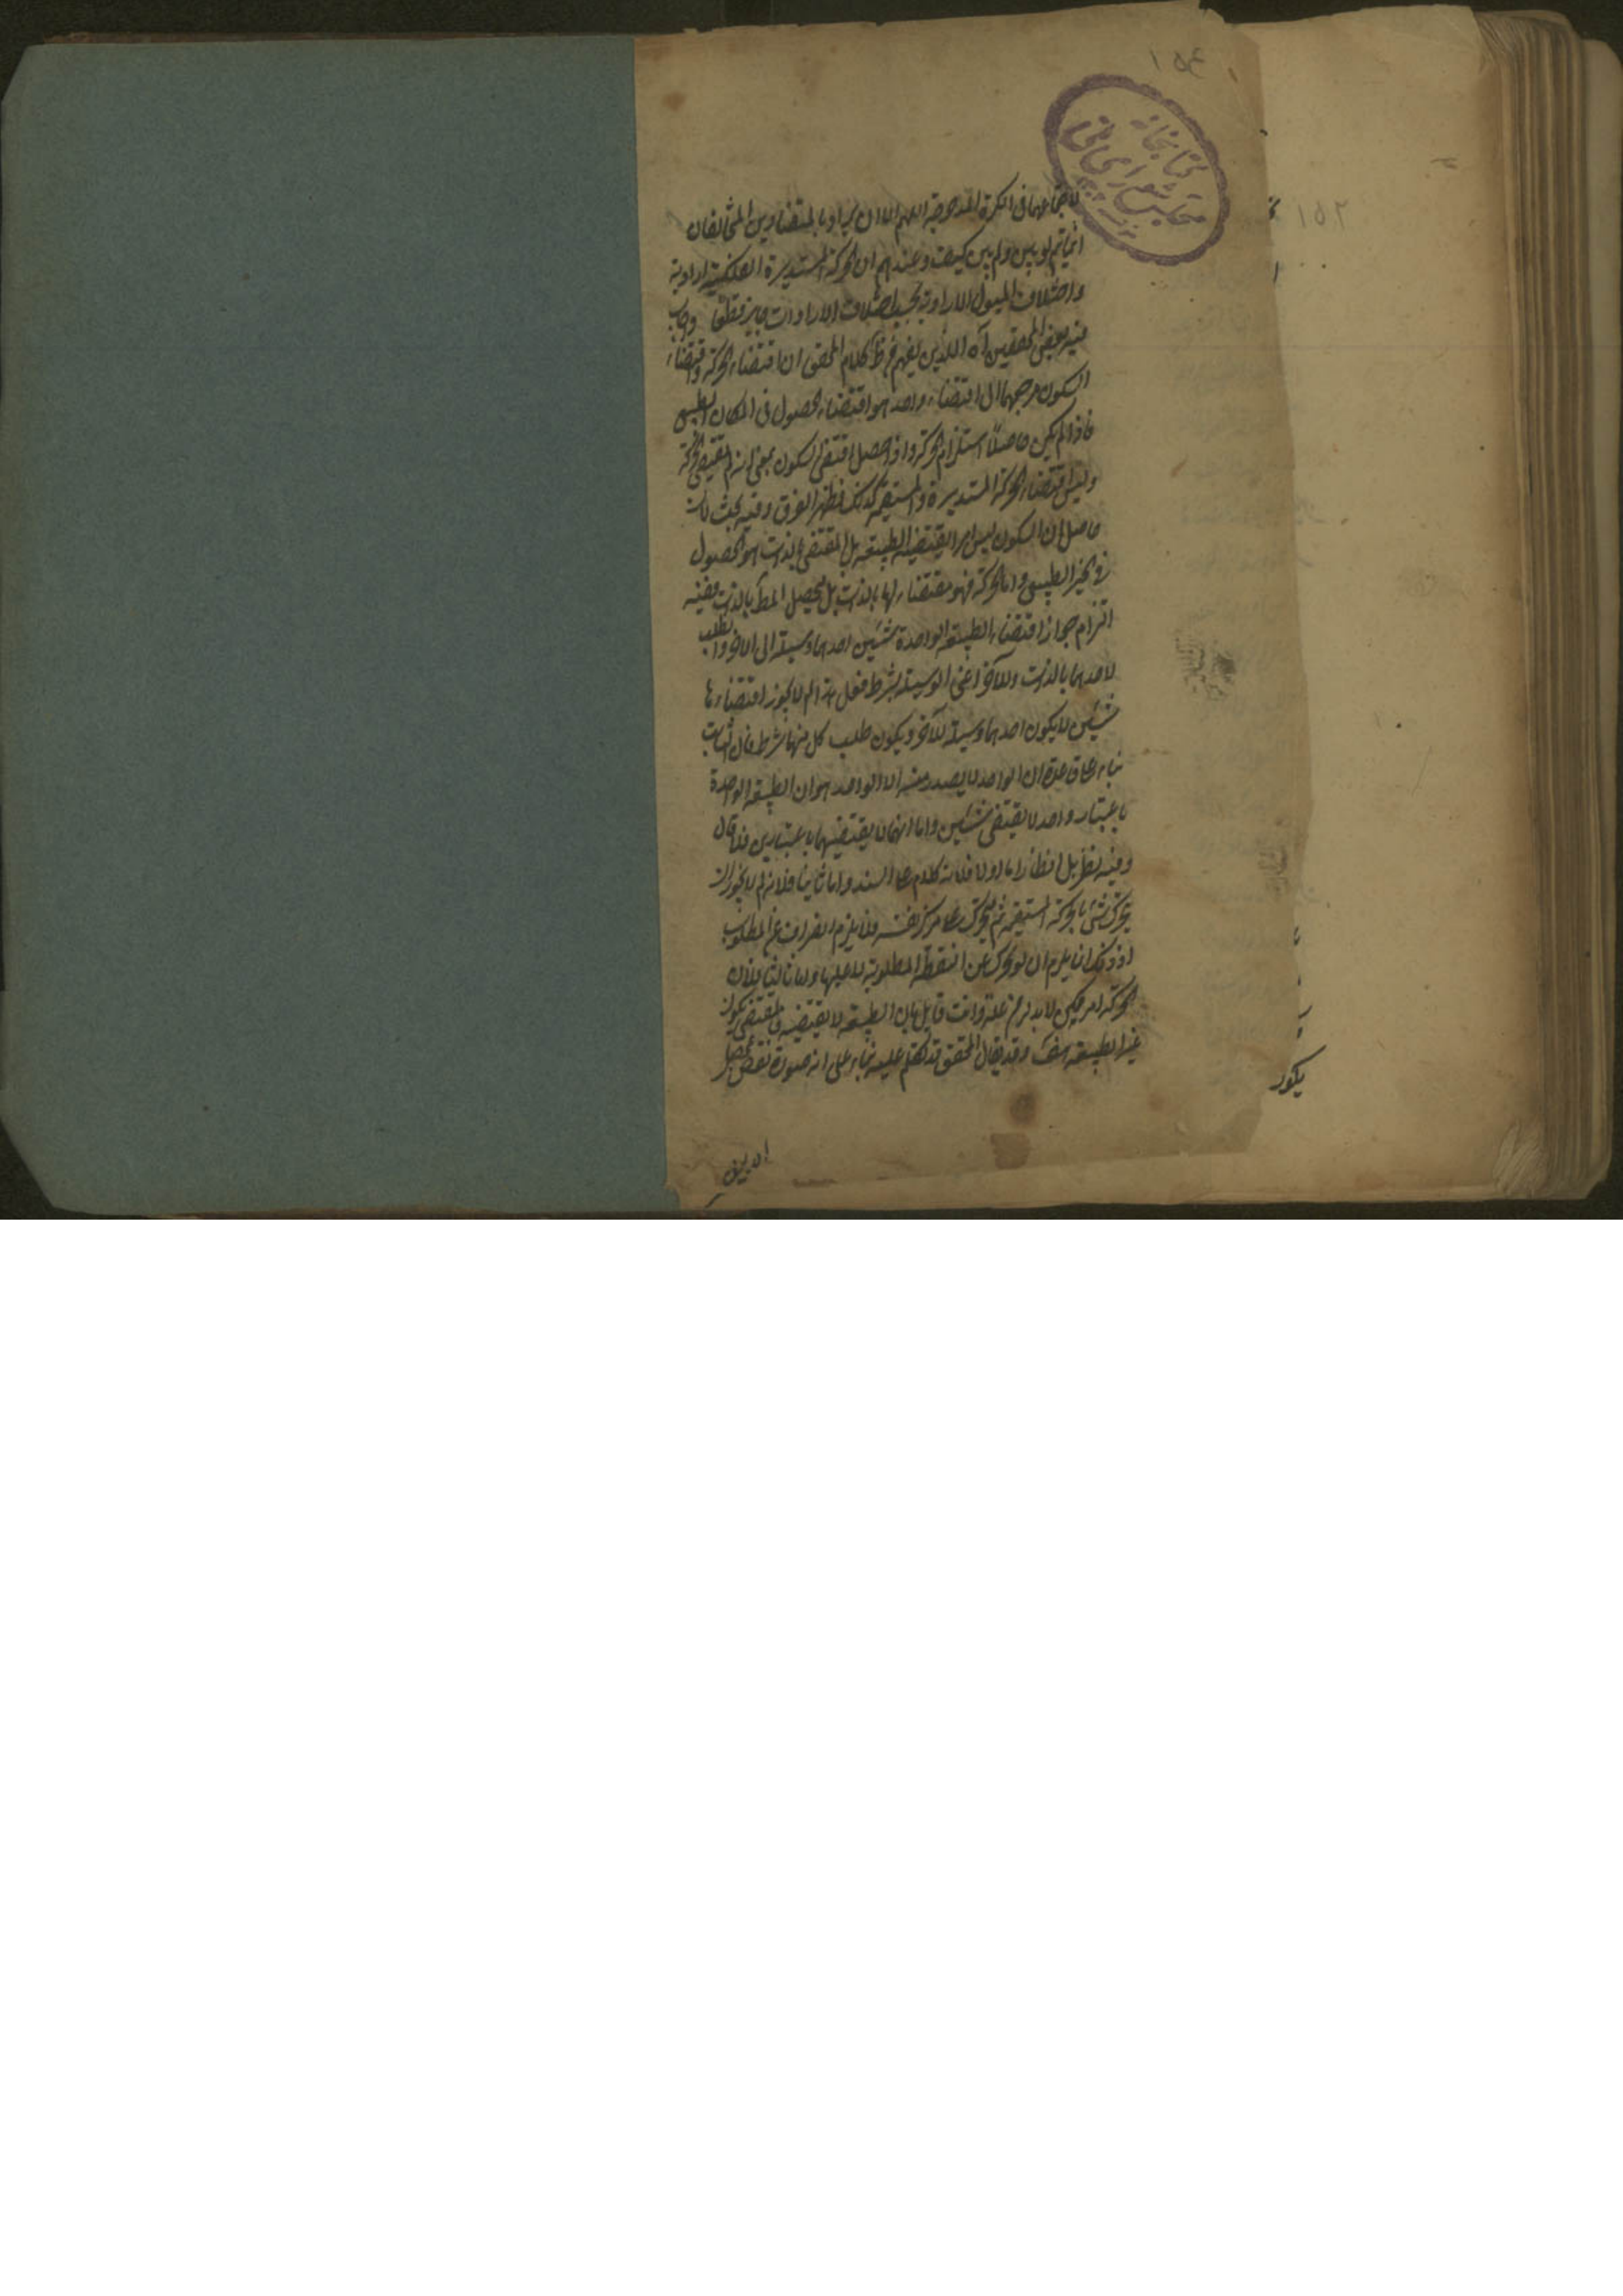 ١٥٤
كتابخانه
مجلس شورای ملی
١٥٢
لاجتماعهما فى الكرة المدحرجة اللهم الا ان يراد بالمتضادين المتخالفان
انما يتم لو بين ولم يبين كيف وعندهم ان الحركة المستديرة الفلكية ارادية
واختلاف الميول الارادية بحسب اختلاف الارادات جايز قطعا واجاب
فيه بعض المحققين آه الذى يفهم من ظ كلام المحقق ان اقتضاء الحركة واقتضاء
السكون مرجعهما الى اقتضاء واحد هو اقتضاء الحصول فى المكان الطبيعى
فاذا لم يكن حاصلا استلزم الحركة واذا حصل اقتضى السكون بمعنى انه لم يقتض الحركة
وليس اقتضاء الحركة المستديرة والمستقيمة كذلك فظهر الفرق وفيه بحث لان
حاصله ان السكون ليس امرا يقتضيه الطبيعة بل المقتضى بالذات هو الحصول
فى الحيز الطبيعى واما الحركة فهو مقتضاء لها بالذات بل لتحصيل المط بالذات ففيه
التزام جواز اقتضاء الطبيعة الواحدة شيئين احدهما وسيلة الى الاخر والطلب
لاحدهما بالذات وللآخر اعنى الوسيلة بشرط فعلى هذا لم لا يجوز اقتضاءها
شيئين لا يكون احدهما وسيلة للآخر ويكون طلب كل منهما بشرط فان الثابت
بناء على قاعدة ان الواحد لا يصدر منه الا الواحد هو ان الطبيعة الواحدة
باعتبار واحد لا يقتضى شيئين واما انها لا يقتضيهما باعتبارين فلا قال
وفيه نظر بل انظار اما اولا فلانه كلام على السند واما ثانيا فلانه لم لا يجوز ان
يتحرك شئ بالحركة المستقيمة ثم يتحرك على مركز نفسه فلا يلزم انصراف عن المطلوب
اذ ذلك انما يلزم ان لو تحرك عن النقطة المطلوبة لا عليها واما ثالثا فلان
الحركة امر ممكن لا بد له من علة وانت قايل بان الطبيعة لا يقتضيه فالمقتضى يكون
غير الطبيعة هف وقد يقال المحقق قد تكلم عليه بناء على انه صورة نقض
يكون